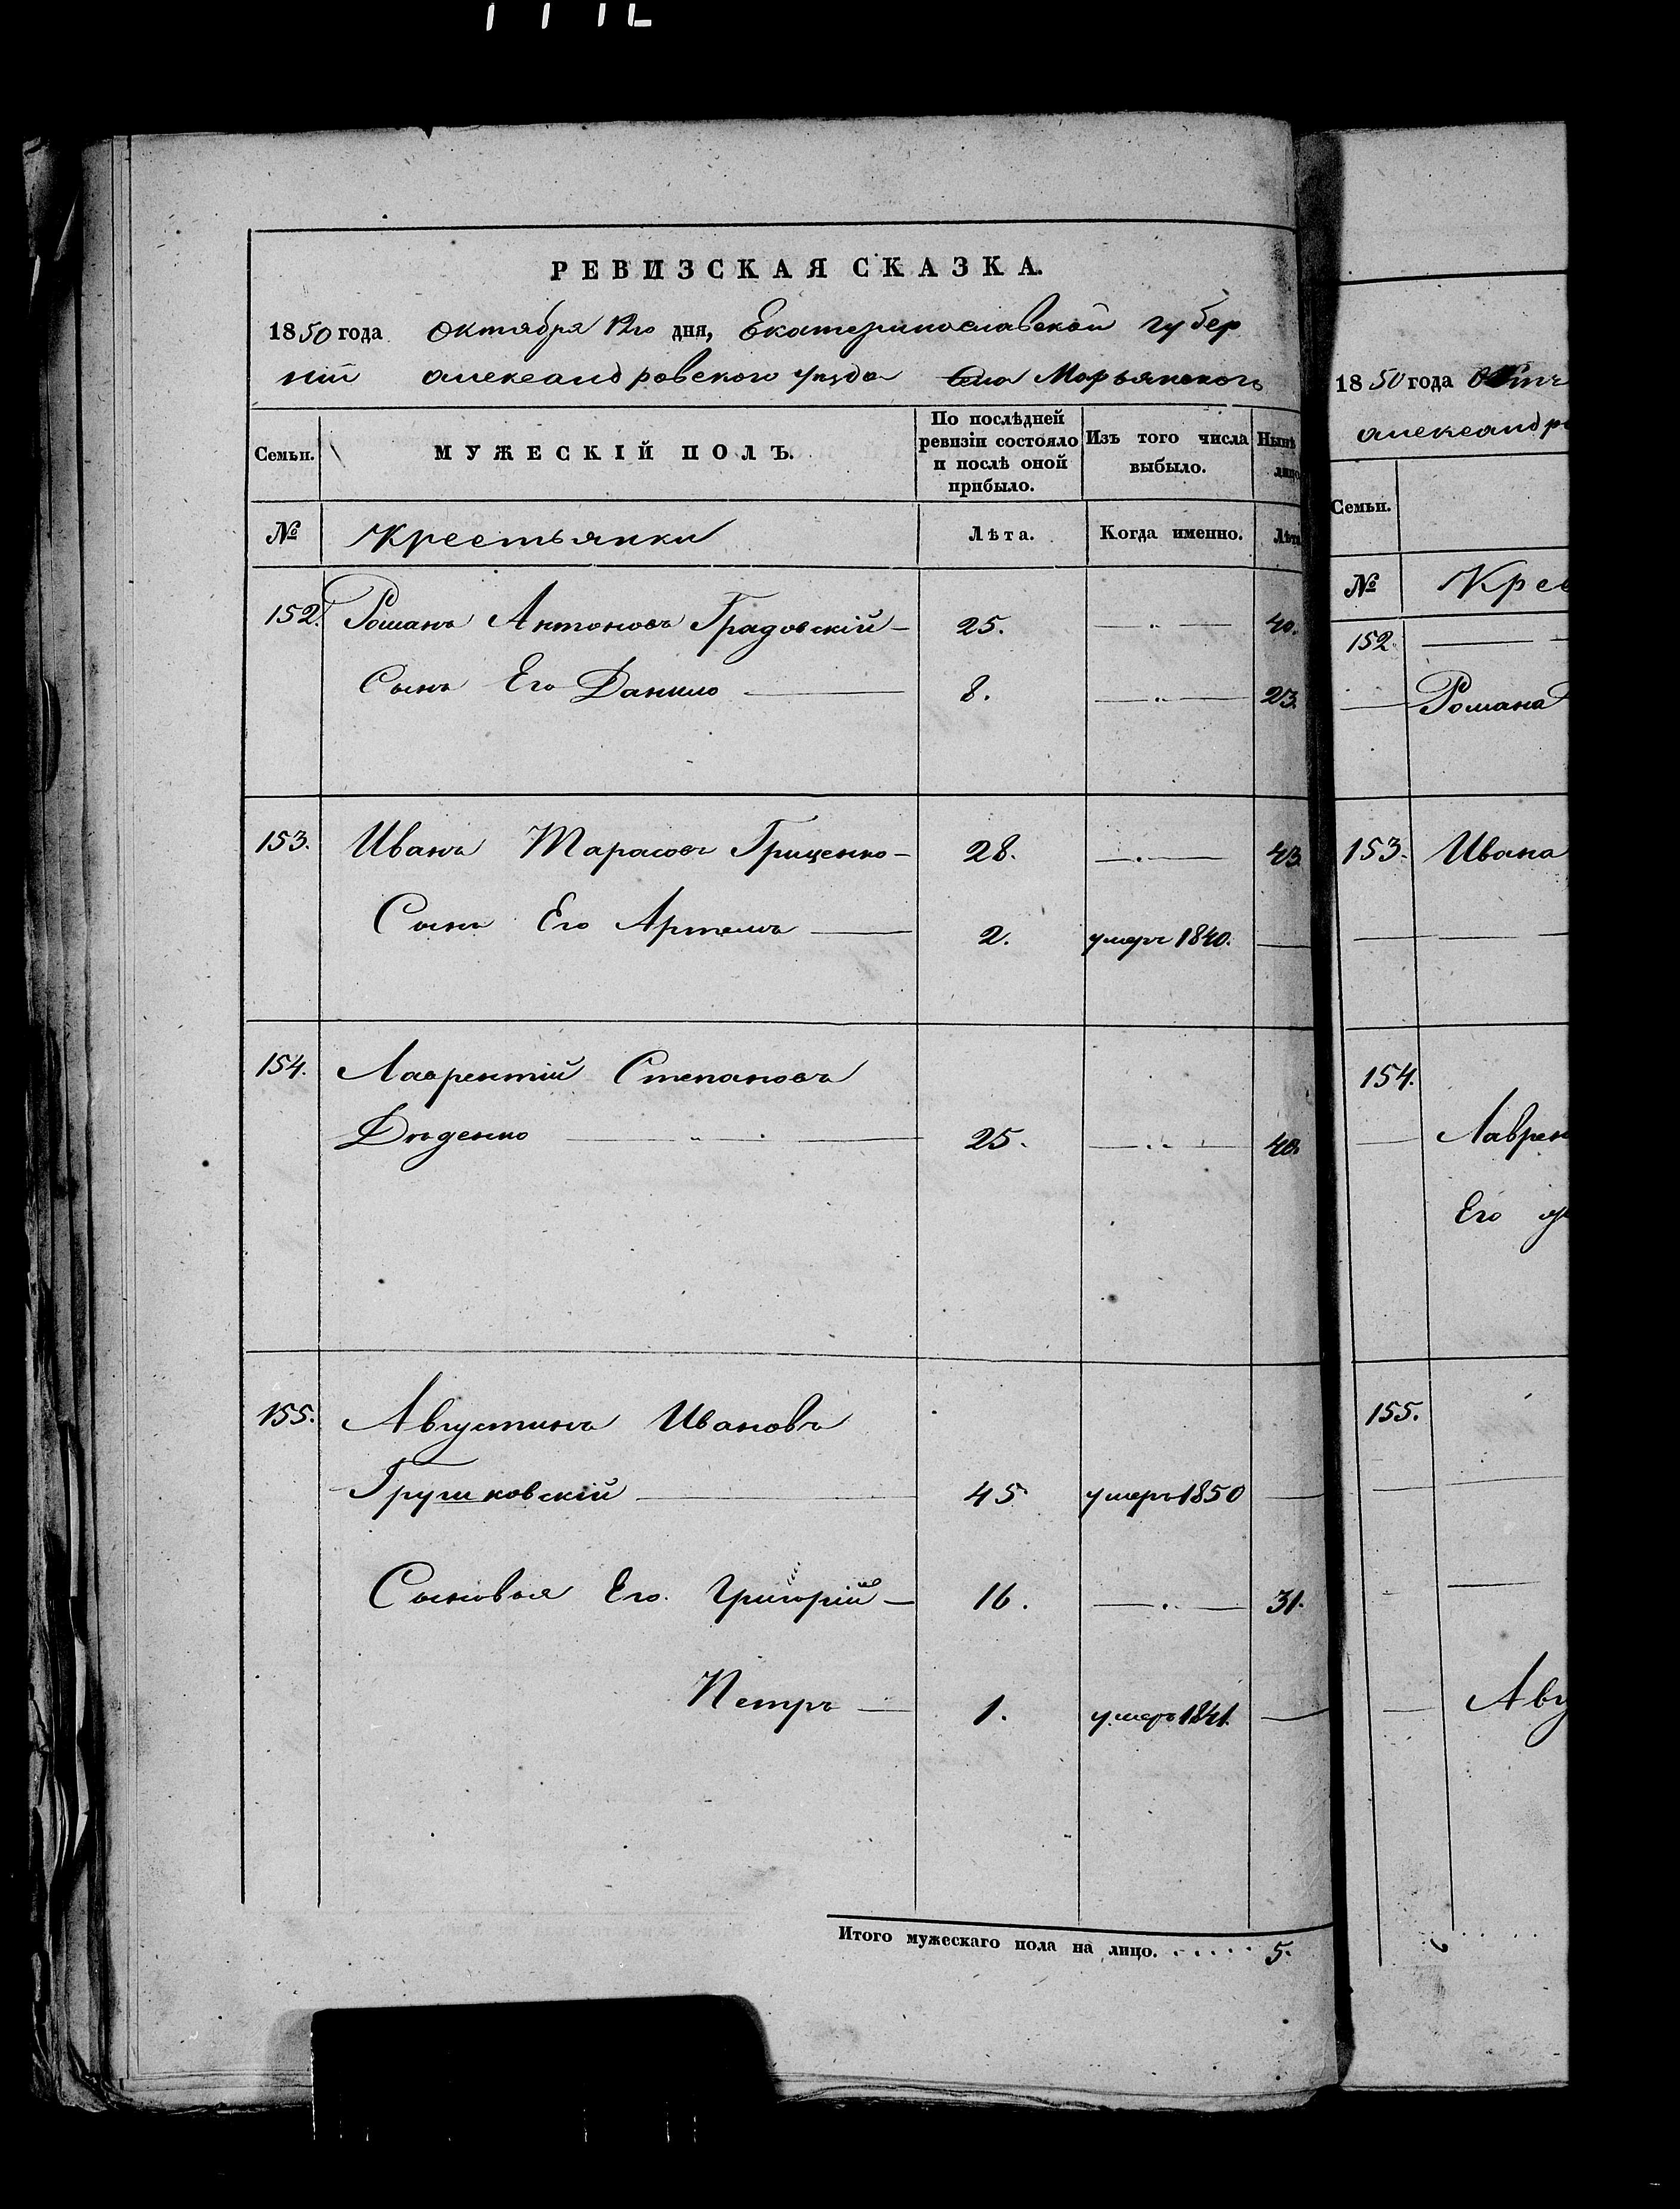 РЕВИЗСКАЯ СКАЗКА.
1850 года октября 12го дня, Екатеринославской губер
ніи александровского уезда Села Марьянского
Семьи. МУЖЕСКІЙ ПОЛЪ. По послѣдней ревизіи состояло и послѣ оной прибыло. Изъ того числа выбыло. Нынѣ лицо
№ Крестьянки Лѣта. Когда именно. Лѣта
152. Романъ Антоновъ Градовскій — 25. — " — 40.
Сынъ Его Данило — 8. — " — 23.
153. Иванъ Тарасовъ Гриценко — 28. — . — 43.
Сынъ Его Артемъ — 2. умеръ 1840. —
154. Лаврентій Степановъ
Дѣденко — " — . — 25. — . . — 40.
155. Августинъ Ивановъ
Грушковскій — 45 умеръ 1850 —
Сыновья Его Григорій — 16. — . — 31.
Петръ — 1. умеръ 1841. —
Итого мужескаго пола на лицо. . . . . . 5.
1850 года
александро
Семьи.
№ Крес
152. —
— Романа
153. Ивана
154.
— Лаврен
Его
155.
— Авгу